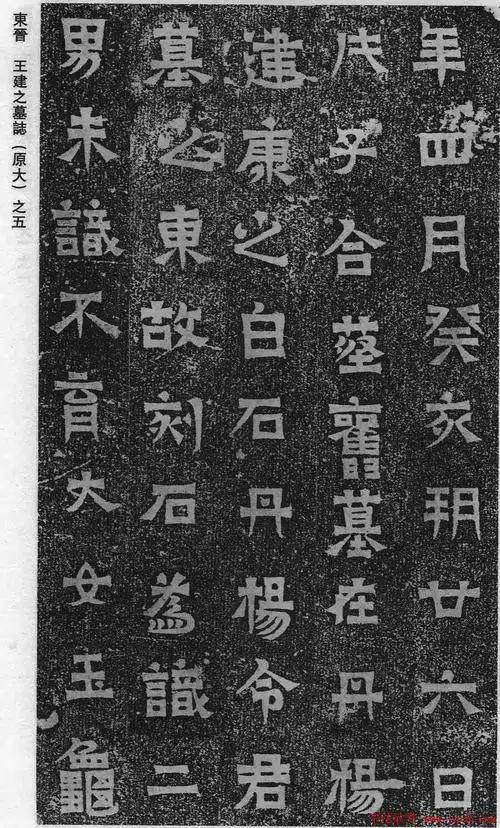 年四月癸亥朔廿六日
戊子合葬舊墓在丹楊
建康之白石丹楊令君
墓之東故刻石為識二
男未識不育大女玉龜
東晉 王建之墓誌(原大)之五